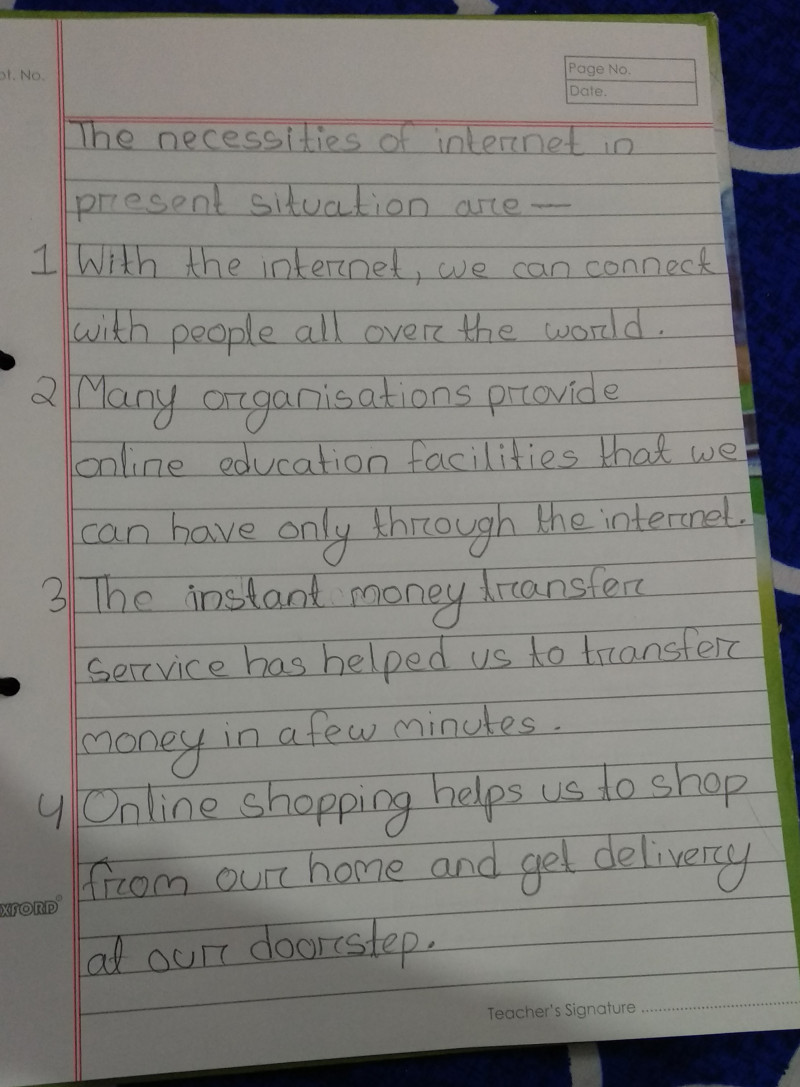 pt. No.
Page No.
Date.
The necessities of internet in
present situation are —
1 With the internet, we can connect
with people all over the world.
2 Many organisations provide
online education facilities that we
can have only through the internet.
3 The instant money transfer
service has helped us to transfer
money in a few minutes.
4 Online shopping helps us to shop
from our home and get delivery
at our doorstep.
XFORD®
Teacher's Signature ........................